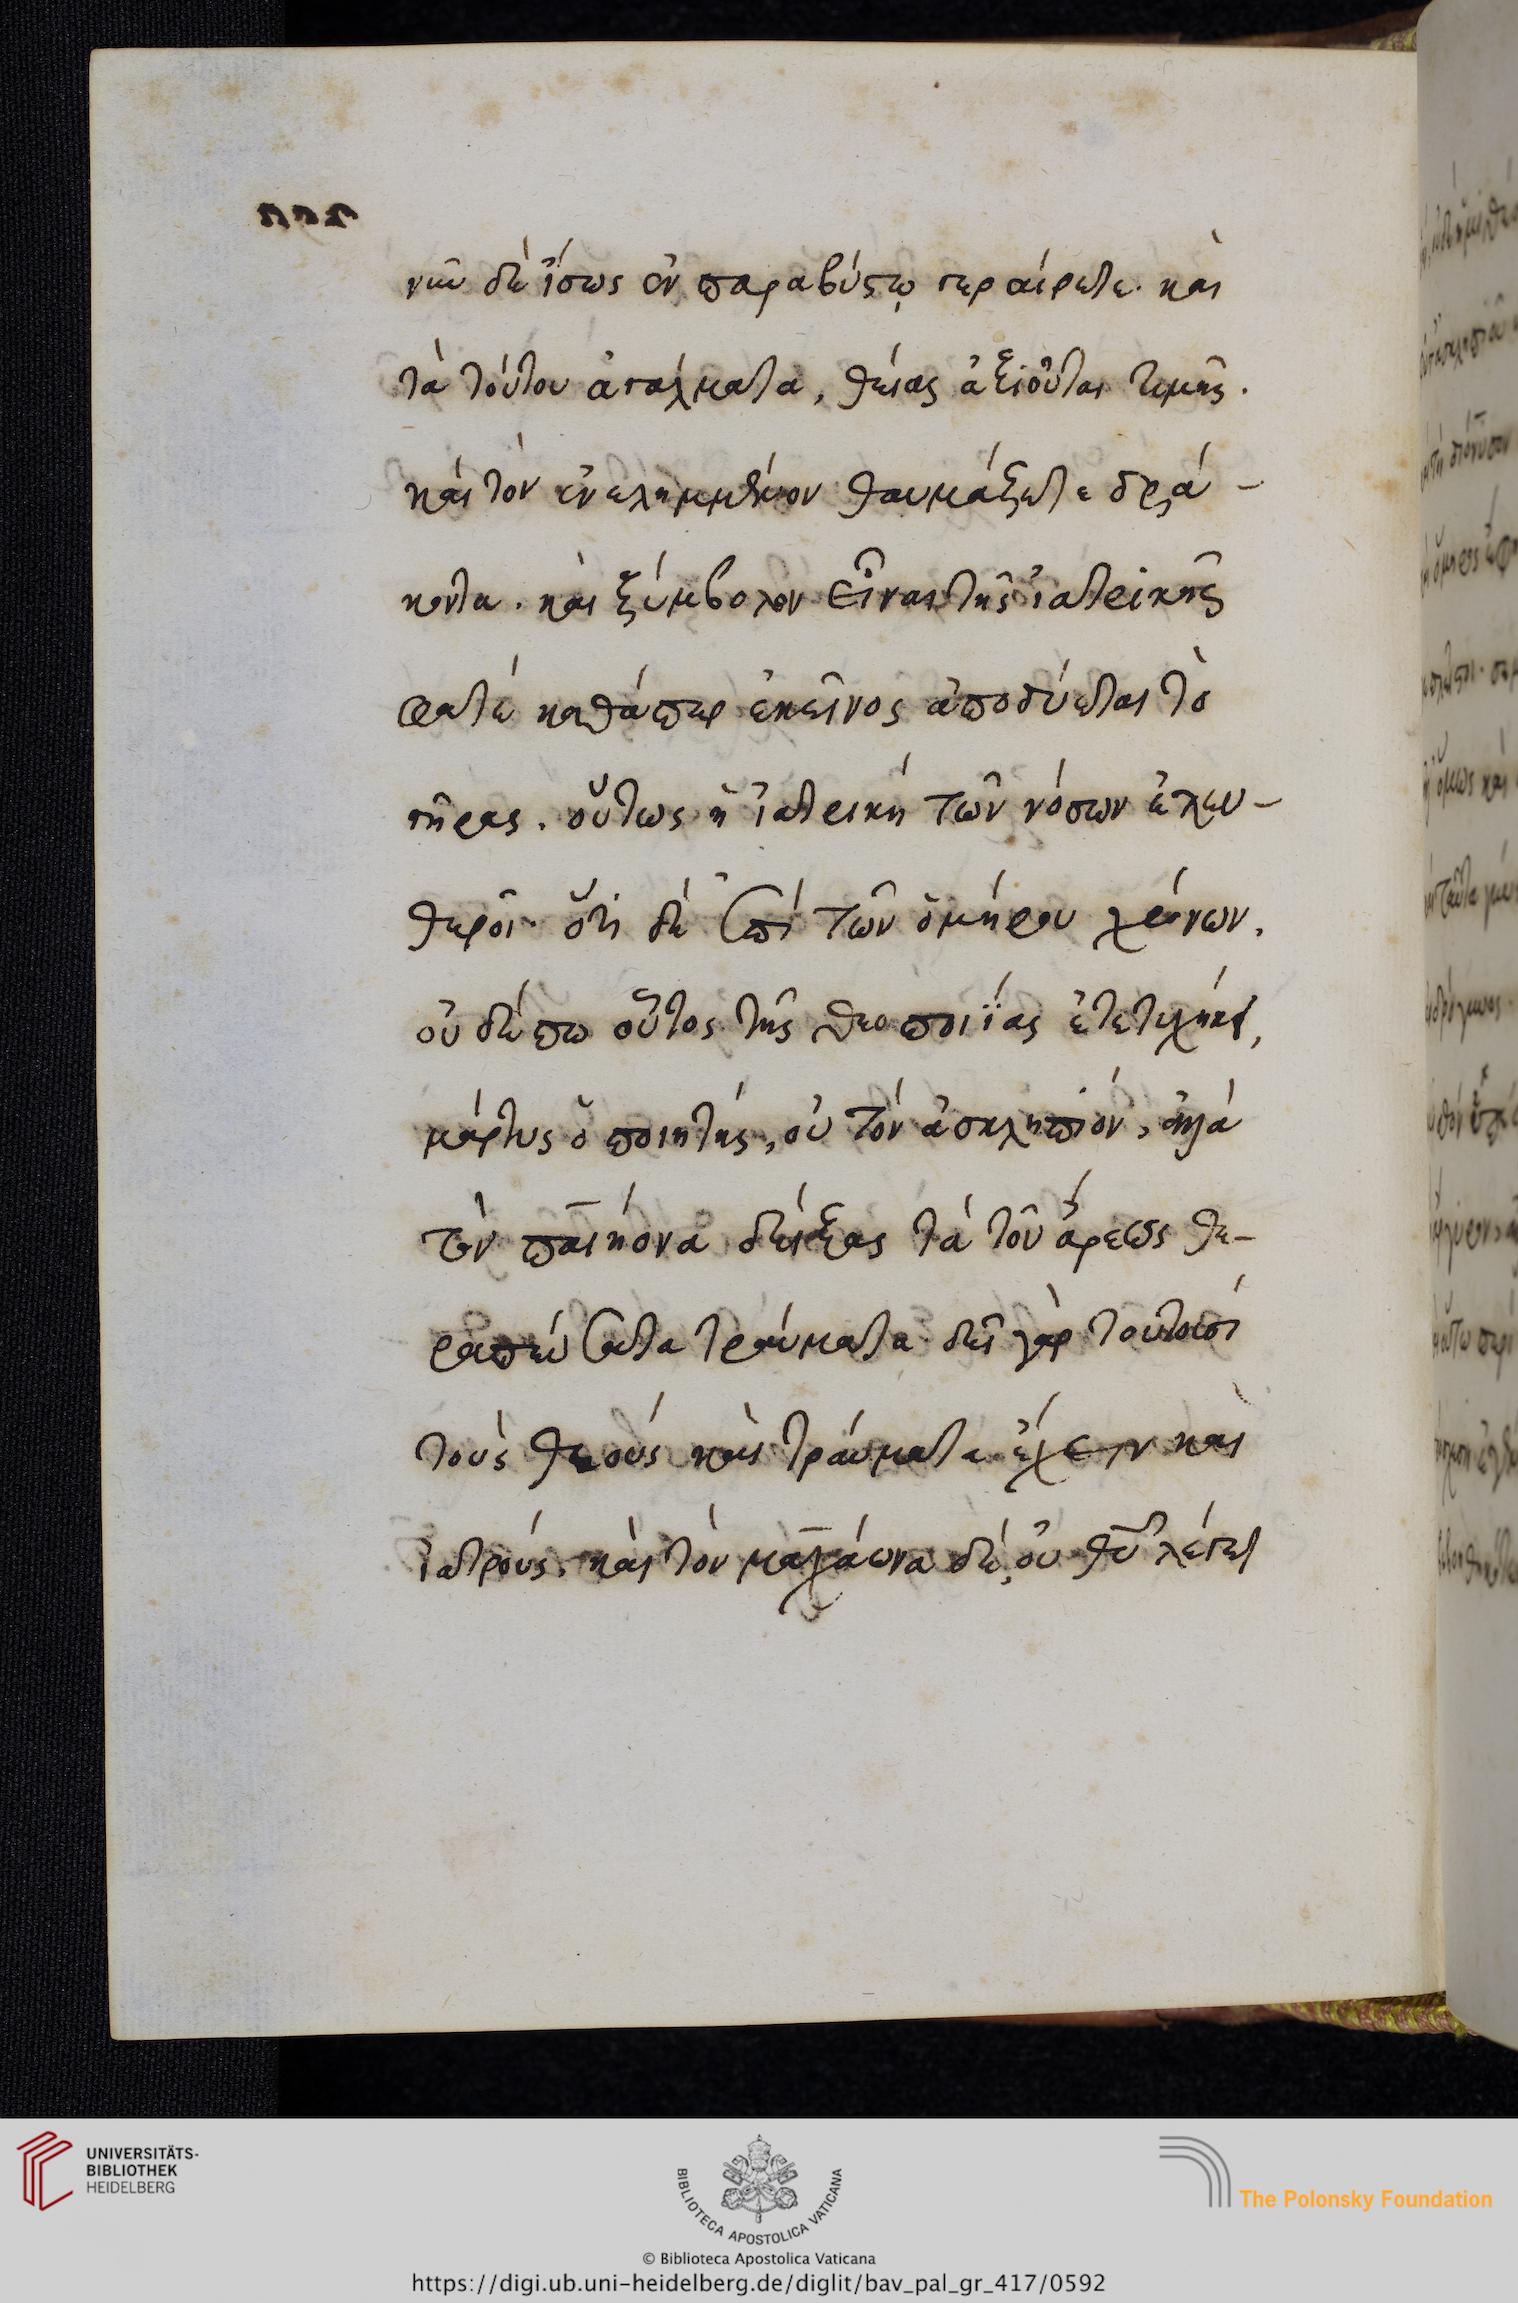 νῦν δὲ ἴσως ἐν παραβύστῳ γεραίρετε. καὶ
τὰ τούτου ἀγάλματα, θείας ἀξιοῦται τιμῆς.
καὶ τὸν ἐνειλημμένον θαυμάζετε δρά-
κοντα. καὶ ξύμβολον εἶναι τῆς ἰατρικῆς
φατέ καθάπερ ἐκεῖνος ἀποδύεται τὸ
γῆρας. οὕτως ἡ ἰατρικὴ τῶν νόσων ἐλευ-
θεροῖ. ὅτι δὲ ἐπὶ τῶν ὁμήρου χρόνων,
οὐδέπω οὗτος τῆς θεοποιΐας ἐτετυχήκει,
μάρτυς ὁ ποιητής, οὐ τὸν ἀσκληπιόν, ἀλλὰ
τὸν παιήονα δείξας τὰ τοῦ ἄρεως θε-
ραπεύσαντα τραύματα δεῖ γὰρ τουτοισί
τοὺς θεοὺς καὶ τραύματα ἔχειν καὶ
ἰατρούς. καὶ τὸν μαχάονα δέ, οὐ θῦ λέγει
UNIVERSITÄTS-
BIBLIOTHEK
HEIDELBERG
BIBLIOTECA APOSTOLICA VATICANA
The Polonsky Foundation
© Biblioteca Apostolica Vaticana
https://digi.ub.uni-heidelberg.de/diglit/bav_pal_gr_417/0592